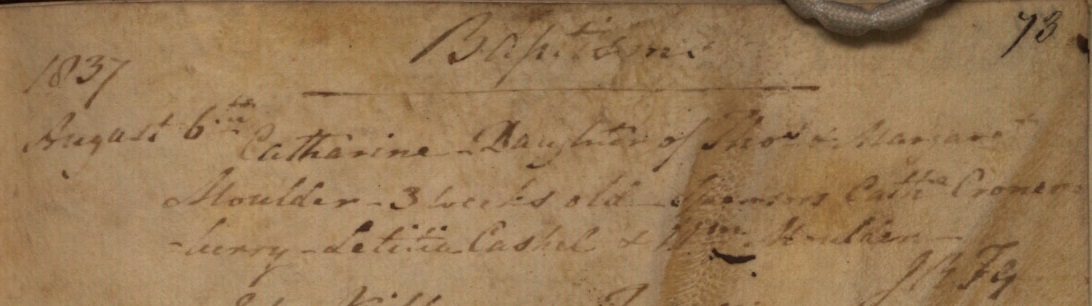 Baptisms 73
1837
August 6th Catharine - Daughter of Thos & Margaret
Moulder - 3 weeks old - Sponsors Cathe Cronen-
-berry - Letitia Cashel & Wm Moulder -